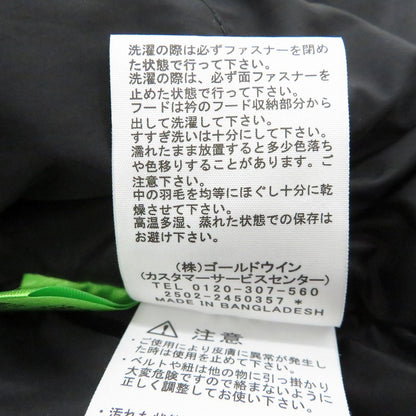 洗濯の際は必ずファスナーを閉め
た状態で行って下さい。
洗濯の際は、必ず面ファスナーを
止めた状態で行って下さい。
フードは衿のフード収納部分から
出して洗濯して下さい。
すすぎ洗いは十分にして下さい。
濡れたまま放置すると多少色落ち
や色移りすることがあります。ご
注意下さい。
中の羽毛を均等にほぐし十分に乾
燥させて下さい。
高温多湿、蒸れた状態での保存は
お避け下さい。
(株)ゴールドウイン
(カスタマーサービスセンター)
TEL 0120-307-560
2502-2450357 *
MADE IN BANGLADESH
⚠ 注意
・ご使用により皮膚に異常が発生し
た時は使用を止めて下さい。
・ベルトや紐は他の物に引っ掛かり
大変危険ですので絡まないように
正しく調整してお使い下さい。